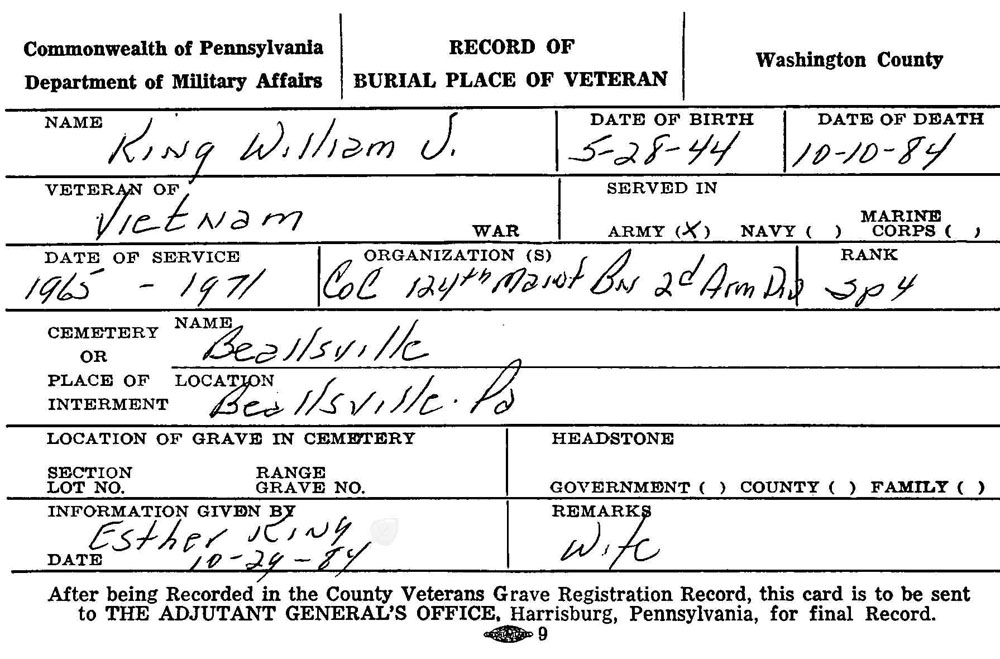 Commonwealth of Pennsylvania
Department of Military Affairs
RECORD OF
BURIAL PLACE OF VETERAN
Washington County
NAME
King William J.
DATE OF BIRTH
5-28-44
DATE OF DEATH
10-10-84
VETERAN OF
Vietnam
WAR
SERVED IN
ARMY (X) NAVY ( ) MARINE CORPS ( )
DATE OF SERVICE
1965 - 1971
ORGANIZATION (S)
CoC 124th Maint Bn 2d Arm Div
RANK
Sp4
CEMETERY
OR
PLACE OF
INTERMENT
NAME
Beallsville
LOCATION
Beallsville. Pa
LOCATION OF GRAVE IN CEMETERY
SECTION RANGE
LOT NO. GRAVE NO.
HEADSTONE
GOVERNMENT ( ) COUNTY ( ) FAMILY ( )
INFORMATION GIVEN BY
Esther King
DATE 10-29-84
REMARKS
Wife
After being Recorded in the County Veterans Grave Registration Record, this card is to be sent
to THE ADJUTANT GENERAL'S OFFICE, Harrisburg, Pennsylvania, for final Record.
9